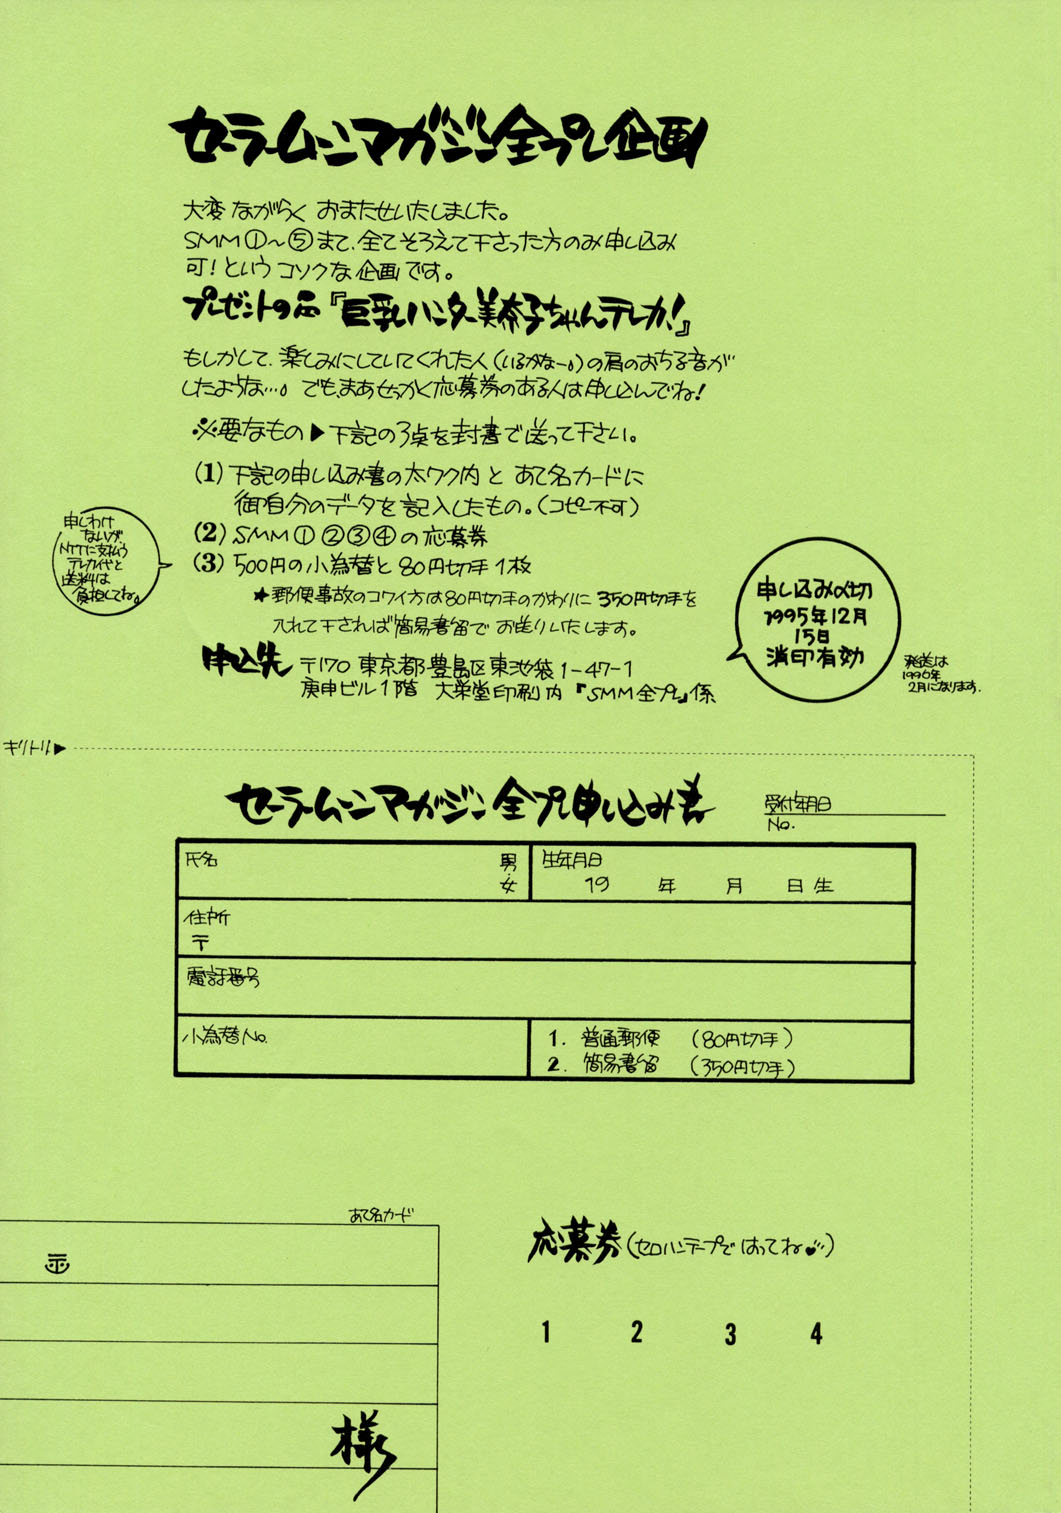 セーラームーンマガジン全プレ企画
大変ながらくおまたせいたしました。
SMM①〜⑤まで、全てそろえて下さった方のみ申し込み
可！というコソクな企画です。
プレゼントの品『巨乳ハンター美奈子ちゃんテレカ！』
もしかして、楽しみにしていてくれた人（いるかなー。）の肩のおちる音が
したような…。でも、まあせっかく応募券のある人は申し込んでね！
※必要なもの▶下記の3点を封書で送って下さい。
(1) 下記の申し込み書の太ワク内と あて名カードに
御自分のデータを記入したもの。（コピー不可）
(2) SMM①②③④の応募券
(3) 500円の小為替と80円切手1枚
★郵便事故のコワイ方は80円切手のかわりに350円切手を
入れて下されば簡易書留でお送りいたします。
申しわけ
ないが
NTTに支払う
テレカ代と
送料は
負担してね。
申込先 〒170 東京都豊島区東池袋1-47-1
庚申ビル1階 大栄堂印刷内『SMM全プレ』係
申し込み〆切
1995年12月
15日
消印有効
発送は
1996年
2月になります。
キリトリ▶
セーラームーンマガジン全プレ申し込み書
受付年月日
No.
氏名 男・女
生年月日
19 年 月 日生
住所
〒
電話番号
小為替No.
1. 普通郵便 （80円切手）
2. 簡易書留 （350円切手）
あて名カード
〒
様
応募券（セロハンテープではってね♥）
1 2 3 4